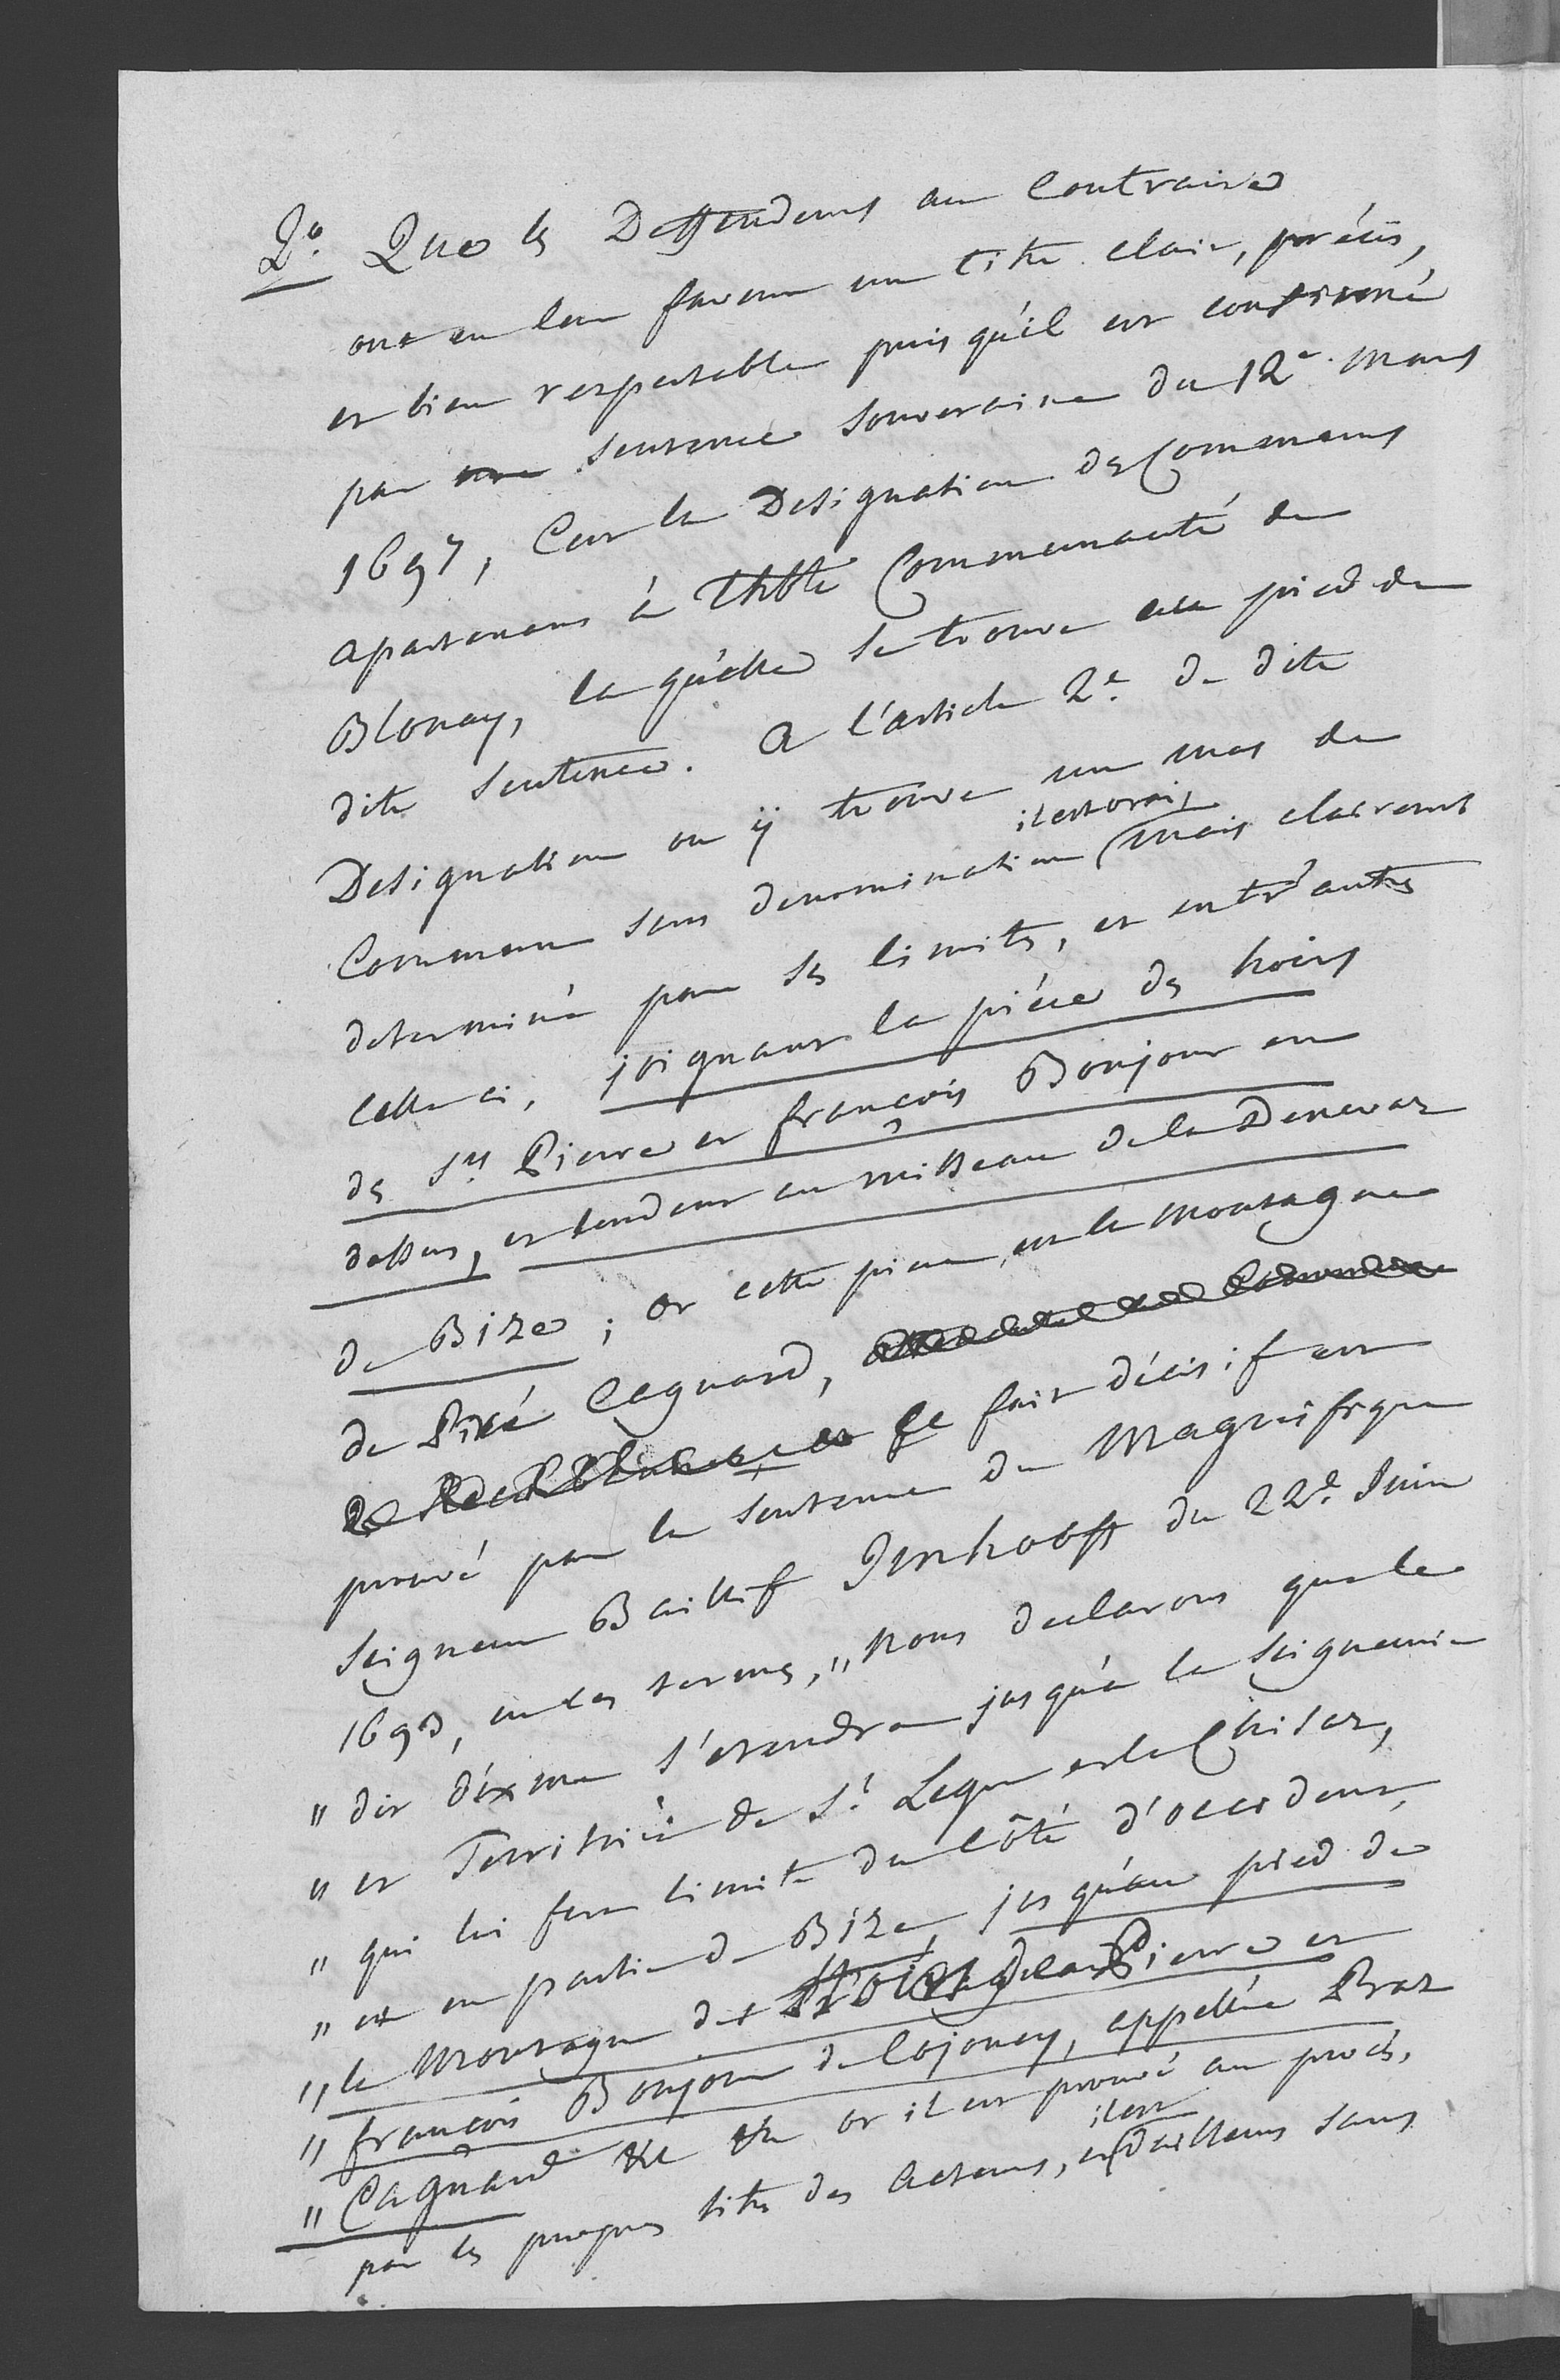 2.° Que les Deffendeurs au Contraire
ont en leur faveur un titre clair, précis,
et bien respectable puis qu'il est confirmé
par une sentence souveraine du 12.e Mars
1697, Car la Designation des Communs
apartenans à l'hble Communauté de
Blonay, la quelle se trouve au pied de
dite sentence. A l'article 2.e de dite
Designation on ÿ trouve un mas de
il est vrai,
Commun sans denomination mais clairement
determiné par ses limites, et entr'autres
celle ci, joignant la pièce des hoirs
des Srs Pierre et françois Bonjour en
dessus, et tendant au ruisseau de la Denevaz
de Bize; or cette piece, est la montagne
de Praz Cagnard,
ce fait décisif est
prouvé par la sentence du Magnifique
Seigneur Baillif Imhooff du 22.e Juin
1693, en ces termes, " Nous declarons que le
" dit dixme s'etendra jusqu'à la Seigneurie
" et Territoire de St. Legier et la Chisaz,
" qui lui fera limite du côté d'occident,
" et en partie de Bize, jusqu'au pied de
" la Montagne des hoirs de Pierre et
" françois Bonjour de Cojonay, appellée Praz
" Cagnard &c &c or il est prouvé au procès,
il est
par les propres titres des Acteurs, et d'ailleurs sans